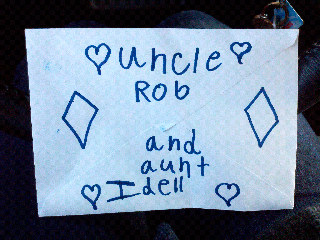 Uncle
Rob
and
aunt
Idell